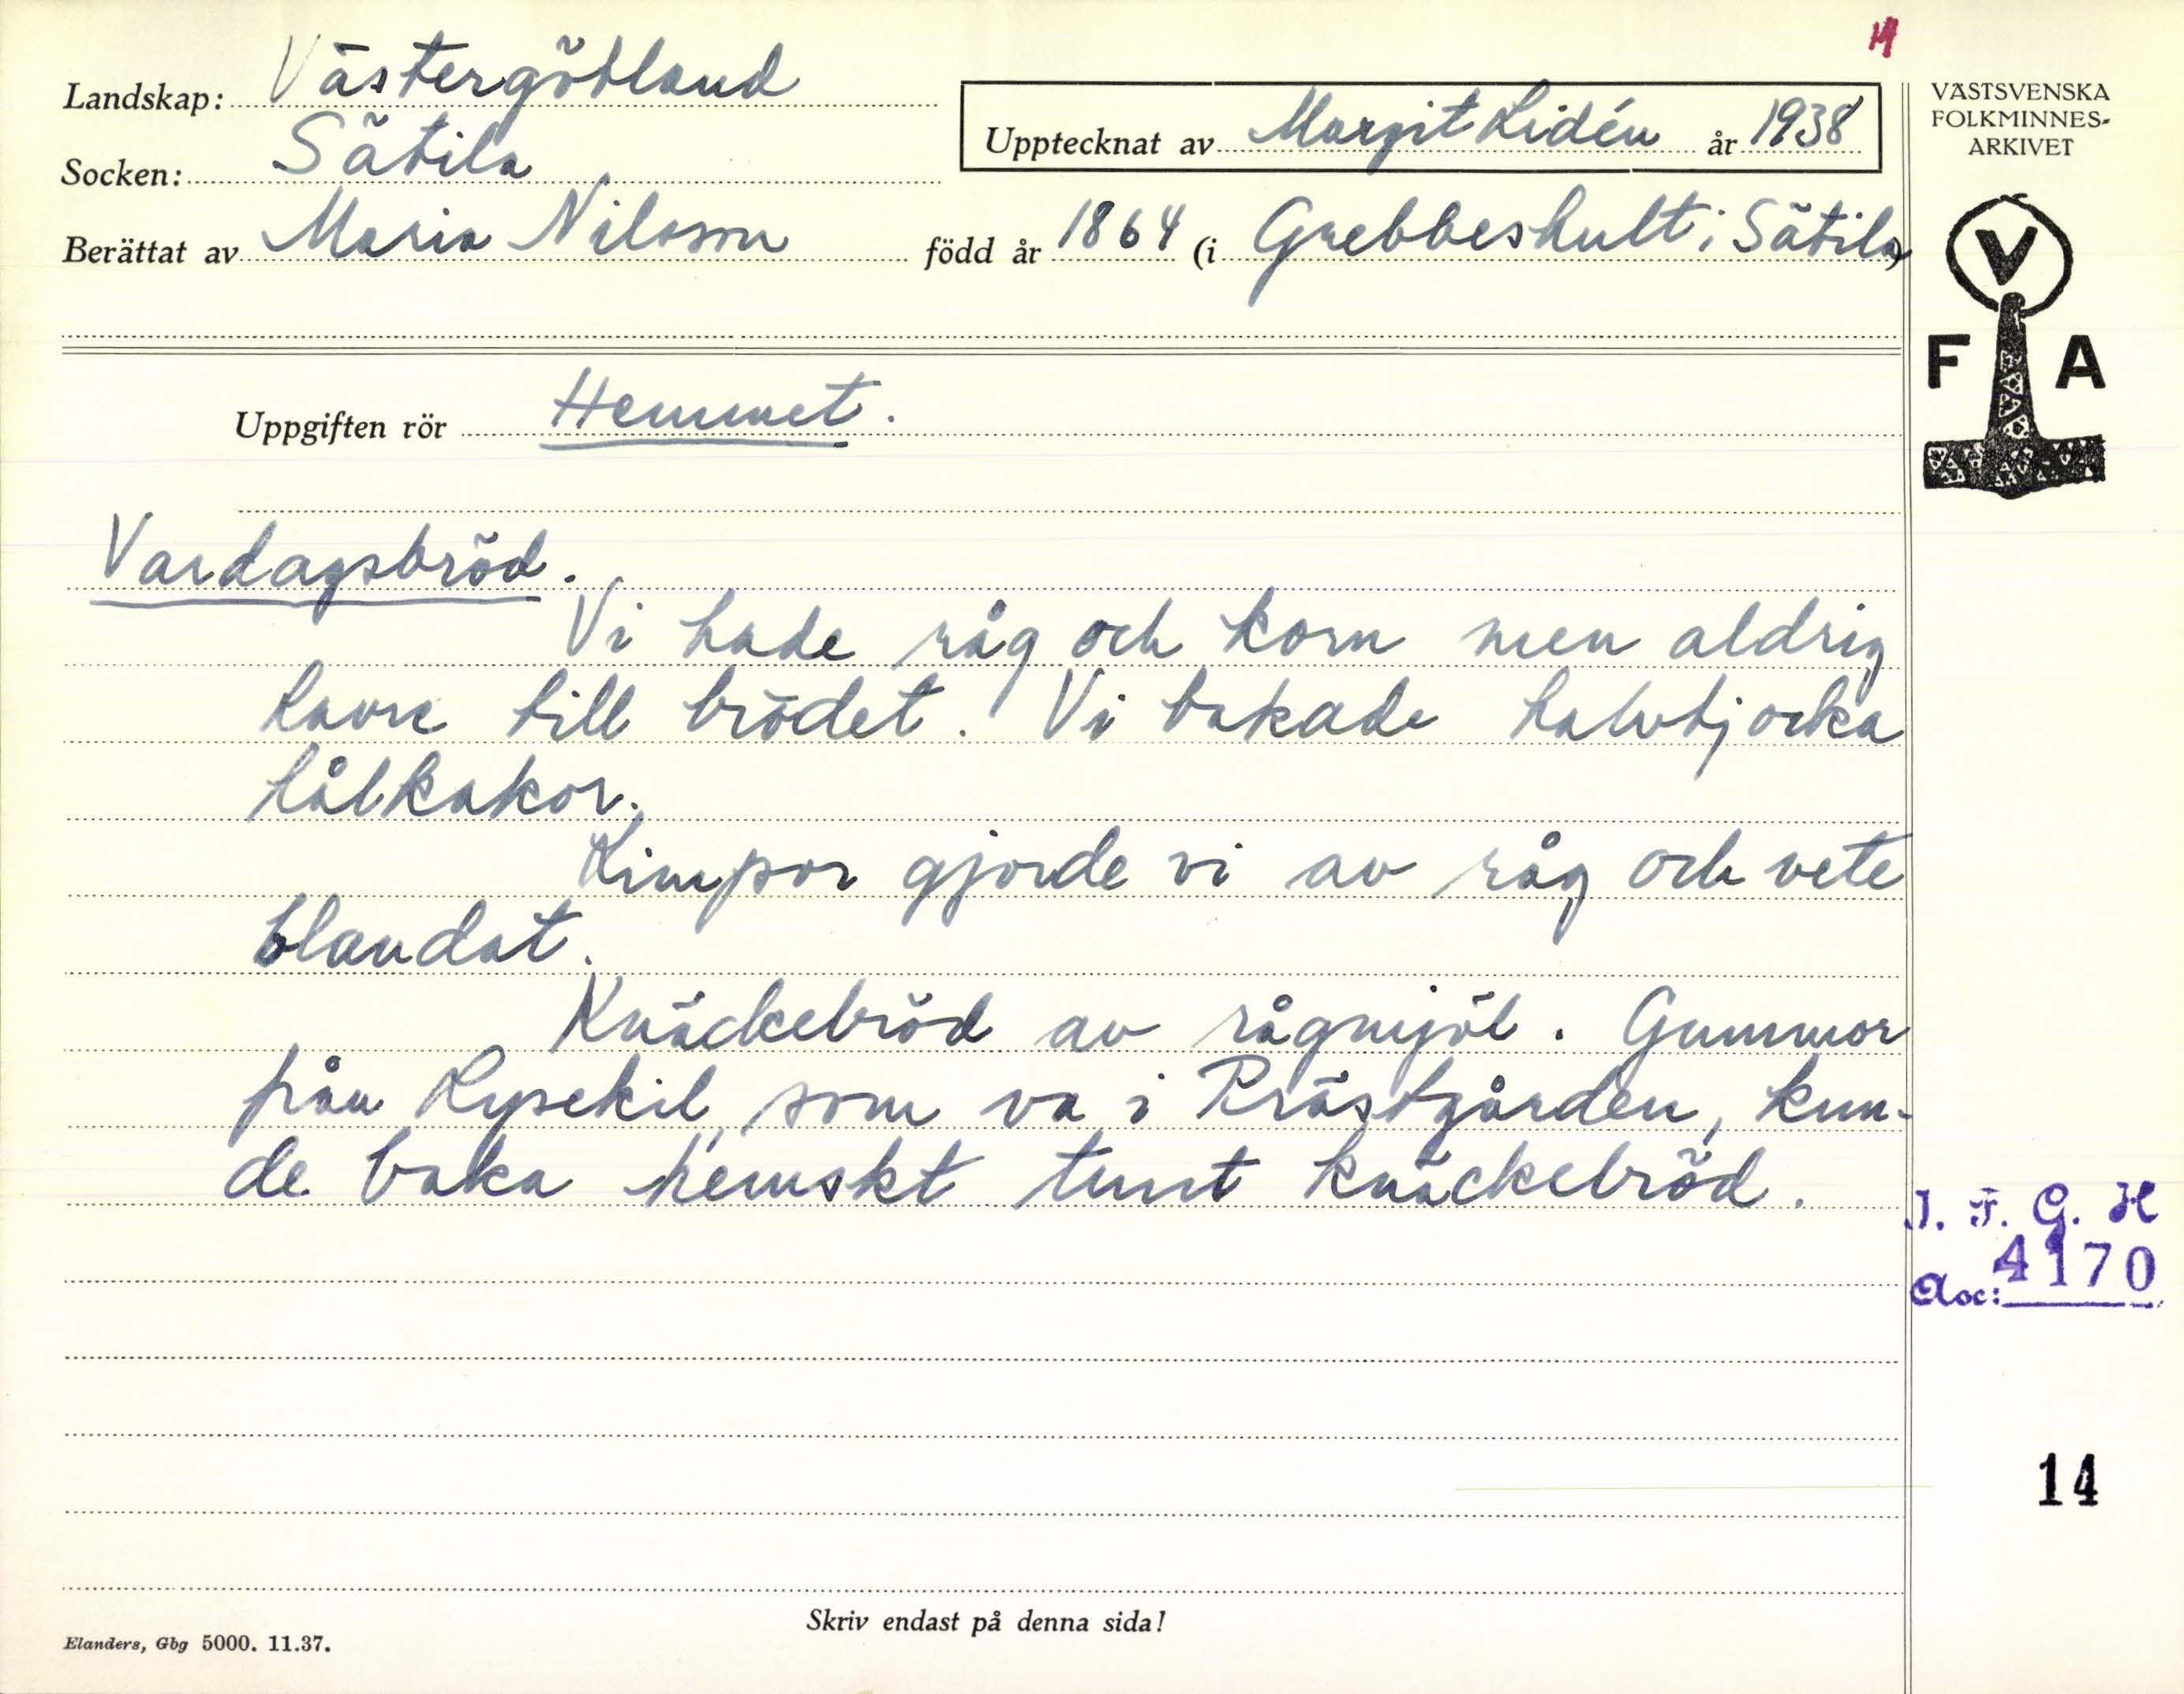 14
Landskap: Västergötland
Socken: Sätila
Berättat av Maria Nilsson
Upptecknat av Margit Lidén år 1938
född år 1864 (i Grebbeshult i Sätila)
Uppgiften rör Hemmet.
Vardagsbröd.
Vi hade råg och korn men aldrig
havre till brödet. Vi bakade halvtjocka
hålkakor.
Limpor gjorde vi av råg och vete
blandat.
Knäckebröd av rågmjöl. Gummor
från Lysekil, som va i Prästgården, kun-
de baka hemskt tunt knäckebröd.
Skriv endast på denna sida!
Elanders, Gbg 5000. 11.37.
VÄSTSVENSKA
FOLKMINNES-
ARKIVET
V
F A
I. F. G. H
Acc: 4170
14